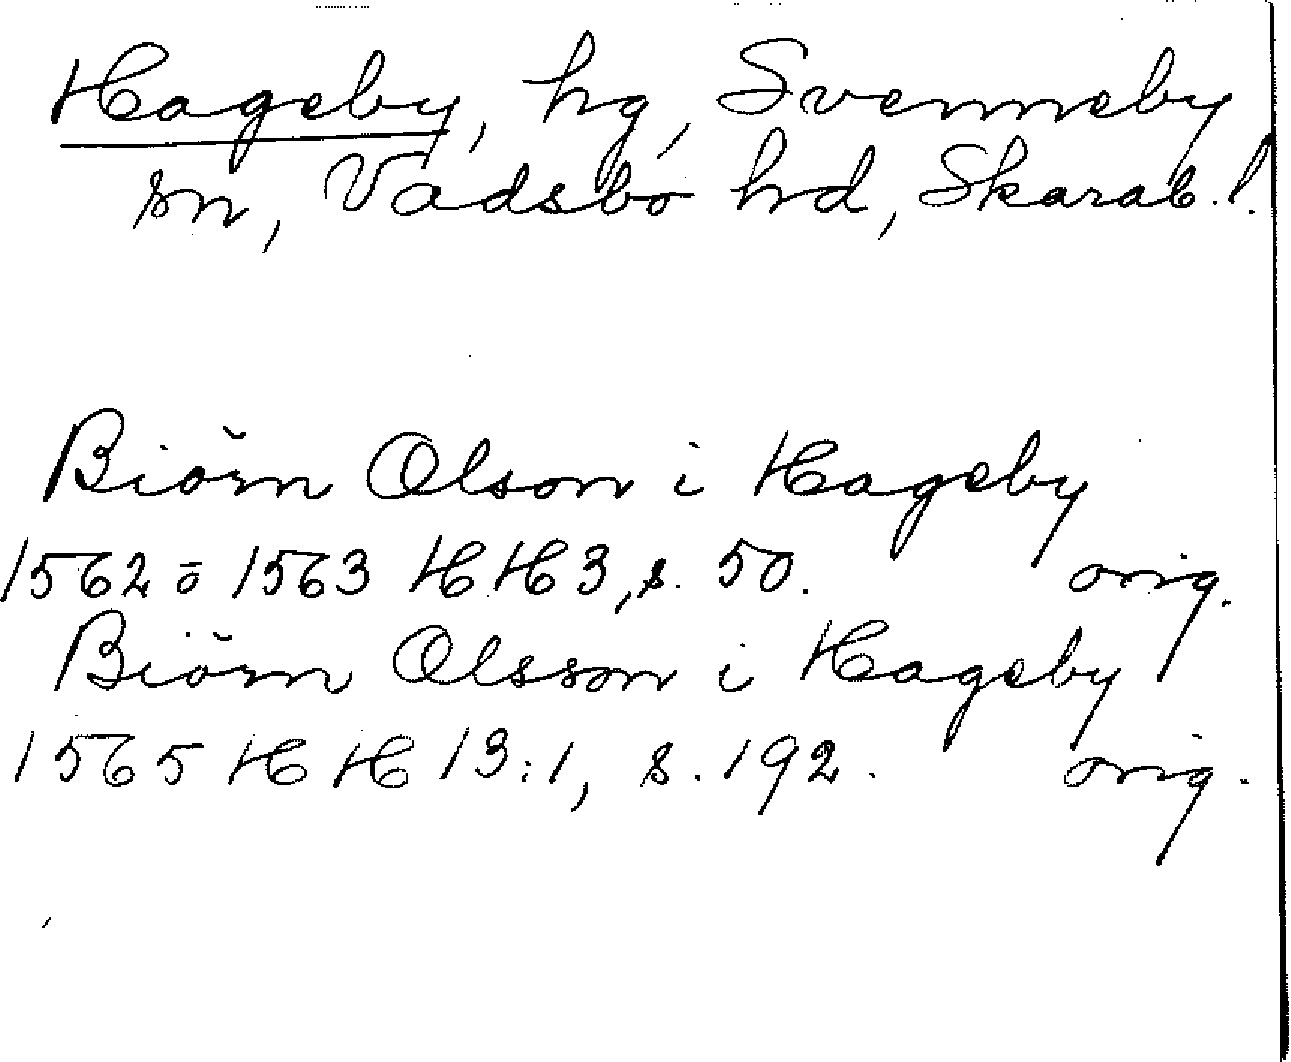 Hageby, hg, Svenneby
sn, Vadsbo hd, Skarab. l.
Biŏrn Olson i Hageby
1562 o 1563 HH 3, s. 50. orig.
Biŏrn Olsson i Hageby
1565 HH 13:1, s. 192. orig.